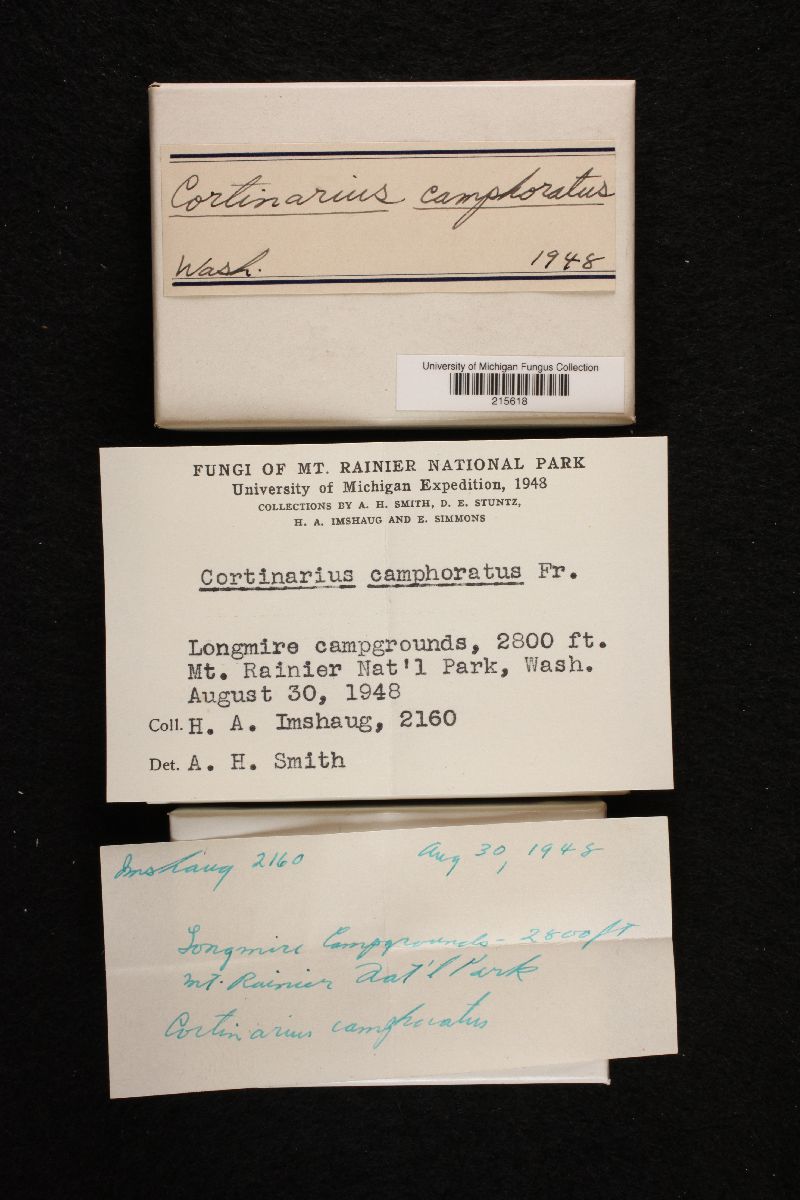 Cortinarius camphoratus
Wash. 1948
University of Michigan Fungus Collection
215618
FUNGI OF MT. RAINIER NATIONAL PARK
University of Michigan Expedition, 1948
COLLECTIONS BY A. H. SMITH, D. E. STUNTZ,
H. A. IMSHAUG AND E. SIMMONS
Cortinarius camphoratus Fr.
Longmire campgrounds, 2800 ft.
Mt. Rainier Nat'l Park, Wash.
August 30, 1948
Coll. H. A. Imshaug, 2160
Det. A. H. Smith
Imshaug 2160 Aug 30, 1948
Longmire Campgrounds - 2800 ft
Mt. Rainier Nat'l Park
Cortinarius camphoratus